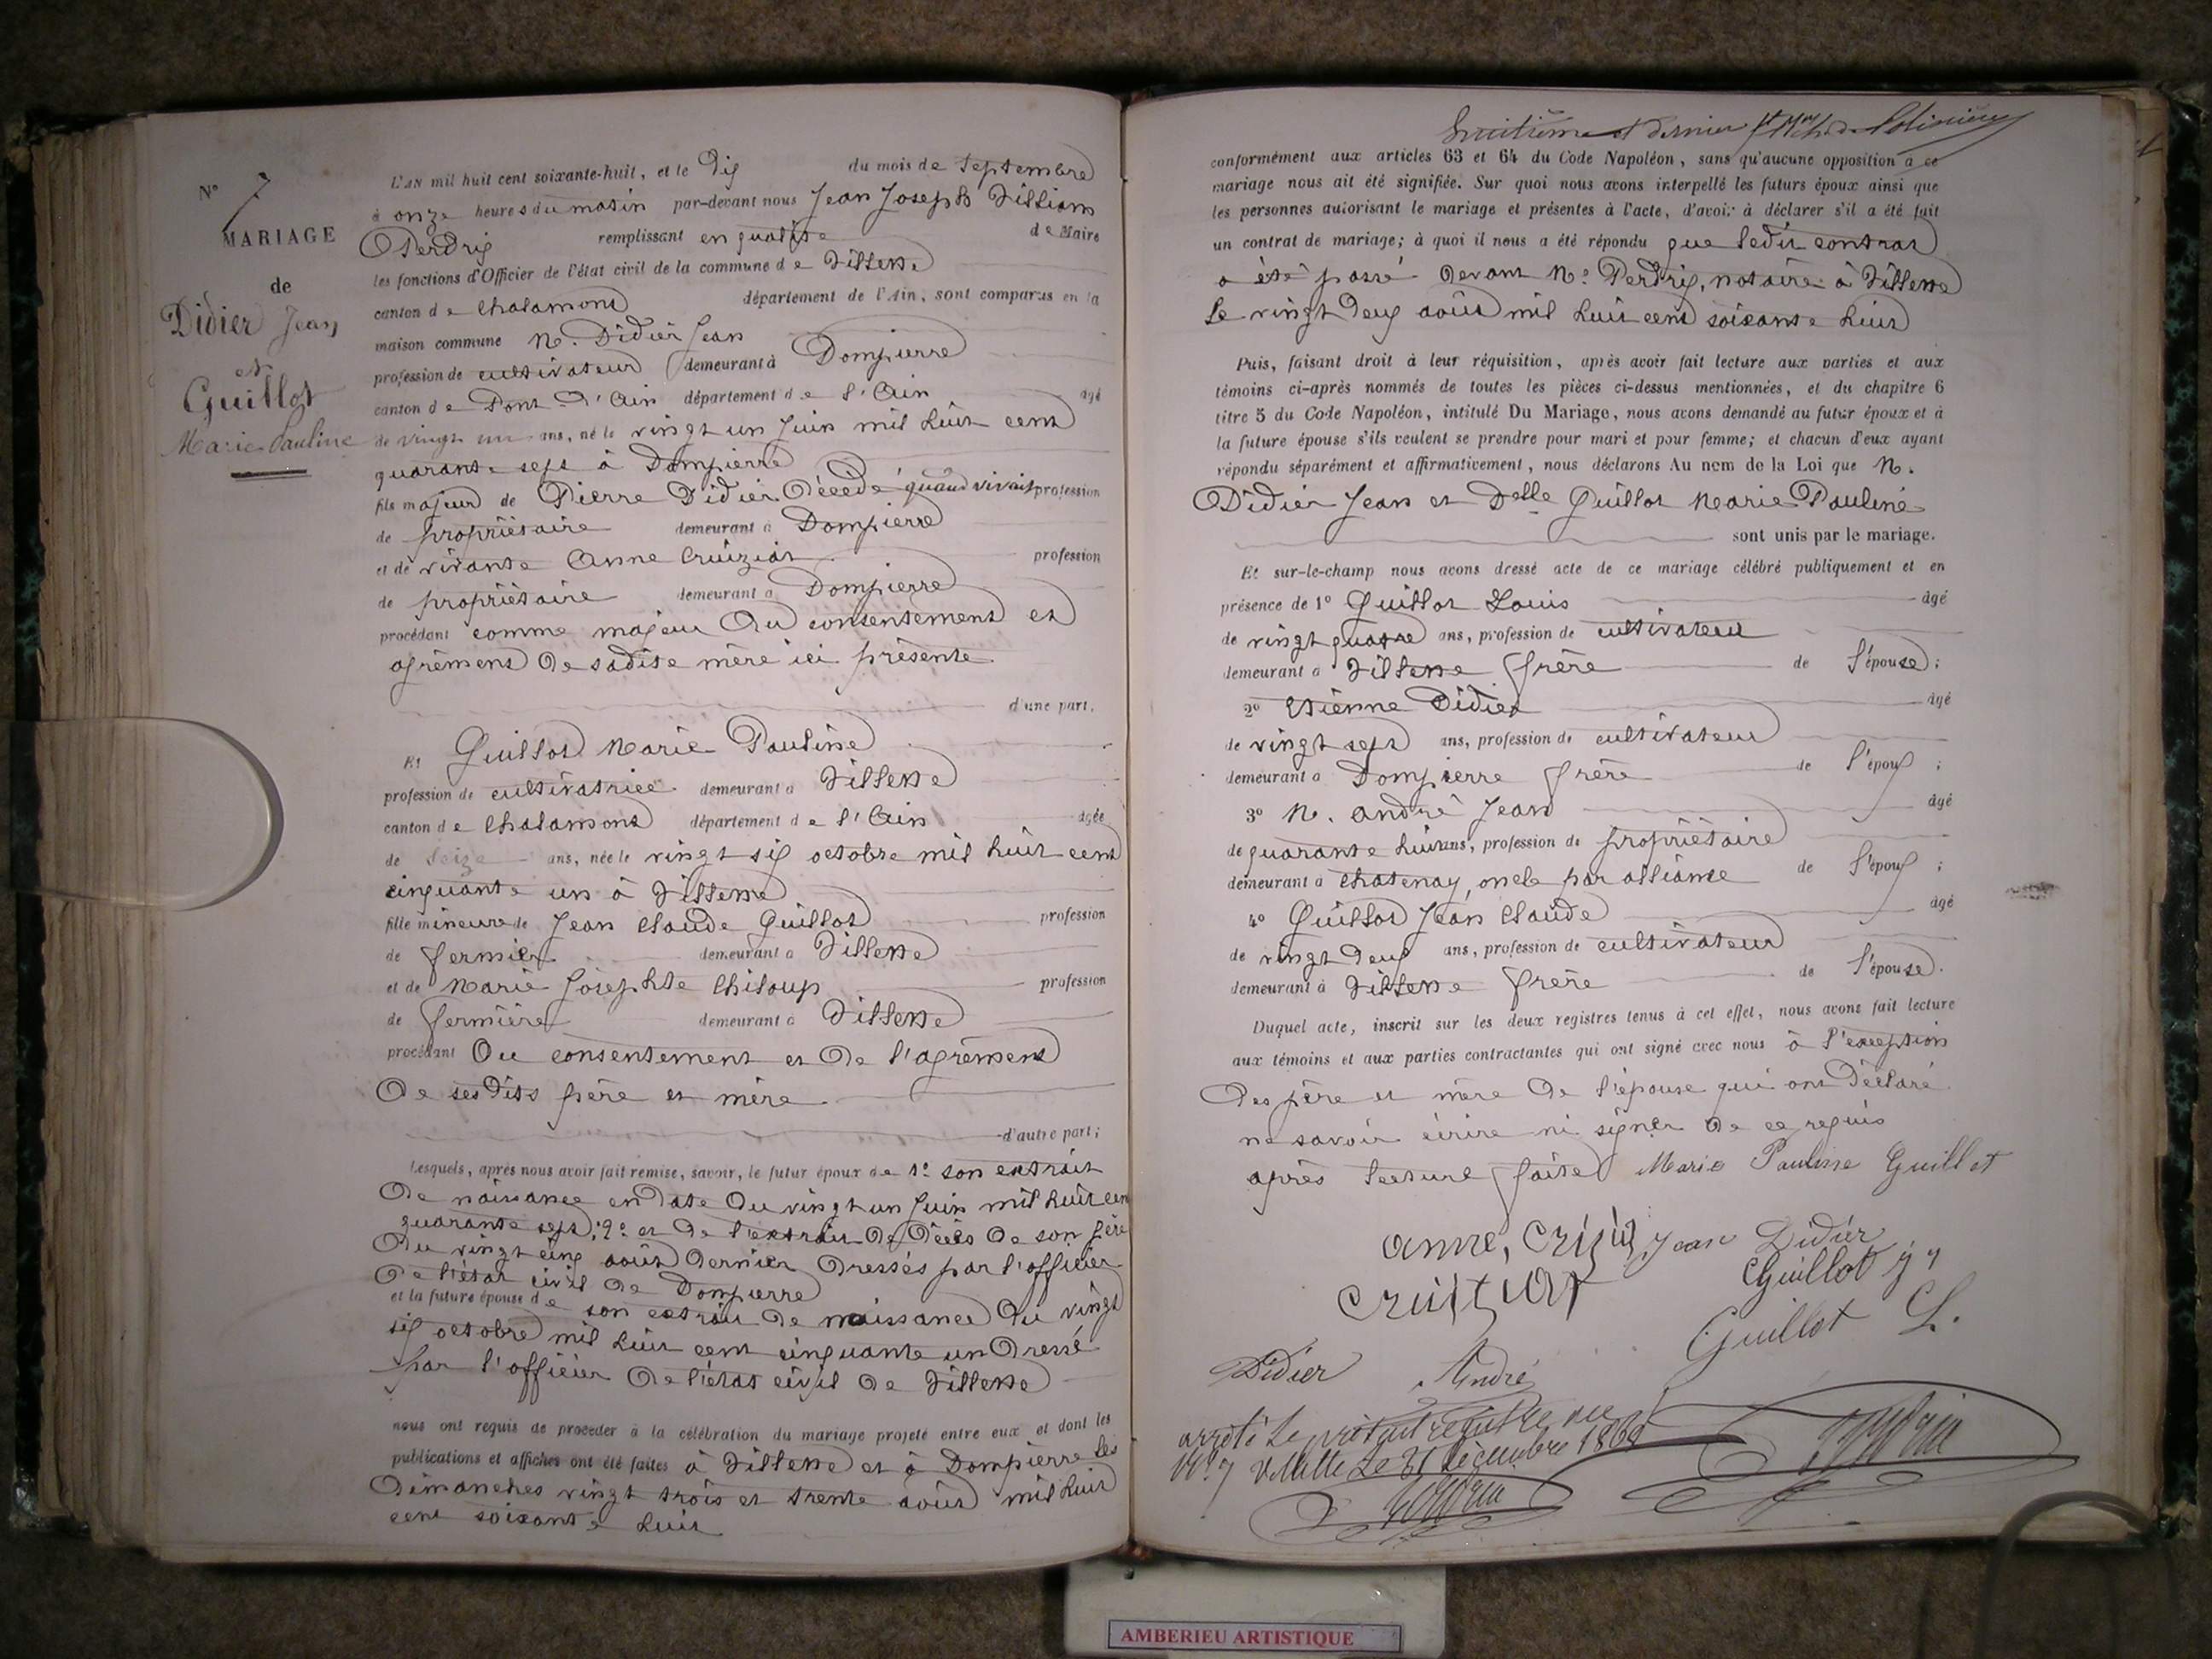 N° 7
MARIAGE
de
Didier Jean
et
Guillot
Marie Pauline
L'AN mil huit cent soixante-huit, et le Dix du mois de Septembre
à onze heures du matin par-devant nous Jean Joseph William
Perdrix remplissant en qualité de Maire
les fonctions d'Officier de l'état civil de la commune de Villette
canton de Chalamont département de l'Ain, sont comparus en la
maison commune M. Didier Jean
profession de cultivateur demeurant à Dompierre
canton de Pont-d'Ain département de l'Ain âgé
de vingt un ans, né le vingt un Juin mil huit cent
quarante sept à Dompierre
fils majeur de Pierre Didier Décédé quand vivait profession
de propriétaire demeurant à Dompierre
et de vivante Anne Cruiziat profession
de propriétaire demeurant à Dompierre
procédant comme majeur Du consentement et
agrément de sadite mère ici présente
d'une part.
Et Guillot Marie Pauline
profession de cultivatrice demeurant à Villette
canton de Chalamont département de l'Ain âgée
de Seize ans, née le vingt six octobre mil huit cent
cinquante un à Villette
fille mineure de Jean Claude Guillot profession
de fermier demeurant à Villette
et de Marie Josephte Chiloup profession
de fermière demeurant à Villette
procédant Du consentement et De l'agrément
De ses dits père et mère
d'autre part;
Lesquels, après nous avoir fait remise, savoir, le futur époux de 1° son extrait
De naissance en date Du vingt un Juin mil huit cent
quarante sept; 2° et De l'extrait De Décès De son père
Du vingt cinq août Dernier Dressés par l'officier
De l'état civil De Dompierre
et la future épouse de son extrait De naissance Du vingt
six octobre mil huit cent cinquante un Dressé
par l'officier De l'état civil De Villette
nous ont requis de procéder à la célébration du mariage projeté entre eux et dont les
publications et affiches ont été faites à Villette et à Dompierre les
Dimanches vingt trois et trente août mil huit
cent soixante huit
huitième et dernier
conformément aux articles 63 et 64 du Code Napoléon, sans qu'aucune opposition à ce
mariage nous ait été signifiée. Sur quoi nous avons interpellé les futurs époux ainsi que
les personnes autorisant le mariage et présentes à l'acte, d'avoir à déclarer s'il a été fait
un contrat de mariage; à quoi il nous a été répondu que ledit contrat
a été passé Devant Me Perdrix, notaire à Villette
le vingt Deux août mil huit cent soixante huit
Puis, faisant droit à leur réquisition, après avoir fait lecture aux parties et aux
témoins ci-après nommés de toutes les pièces ci-dessus mentionnées, et du chapitre 6
titre 5 du Code Napoléon, intitulé Du Mariage, nous avons demandé au futur époux et à
la future épouse s'ils veulent se prendre pour mari et pour femme; et chacun d'eux ayant
répondu séparément et affirmativement, nous déclarons Au nom de la Loi que M.
Didier Jean et Delle Guillot Marie Pauline
sont unis par le mariage.
Et sur-le-champ nous avons dressé acte de ce mariage célébré publiquement et en
présence de 1° Guillot Louis âgé
de vingt quatre ans, profession de cultivateur
demeurant à Villette frère de l'épouse;
2° Etienne Didier âgé
de vingt sept ans, profession de cultivateur
demeurant à Dompierre frère de l'époux;
3° M. André Jean âgé
de quarante huit ans, profession de propriétaire
demeurant à Chatenay, oncle par alliance de l'époux;
4° Guillot Jean Claude âgé
de vingt Deux ans, profession de cultivateur
demeurant à Villette frère de l'épouse.
Duquel acte, inscrit sur les deux registres tenus à cet effet, nous avons fait lecture
aux témoins et aux parties contractantes qui ont signé avec nous à l'exception
Des père et mère De l'épouse qui ont Déclaré
ne savoir écrire ni signer De ce requis
après lecture faite Marie Pauline Guillot
anne, Jean Didier
cruiziat Guillot
Guillot L.
Didier André
arrêté le présent registre
Villette le 31 Décembre 1868